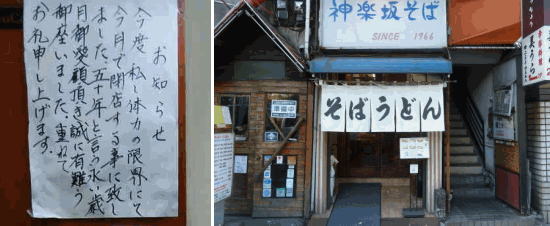 お知らせ
今度、私し体力の限界にて
今月で閉店する事に致し
ました。五十年と言う永い歳
月御愛顧頂き誠に有難う
御座いました、重ねて
お礼申し上げます。
神楽坂そば
SINCE 1966
そばうどん
準備中